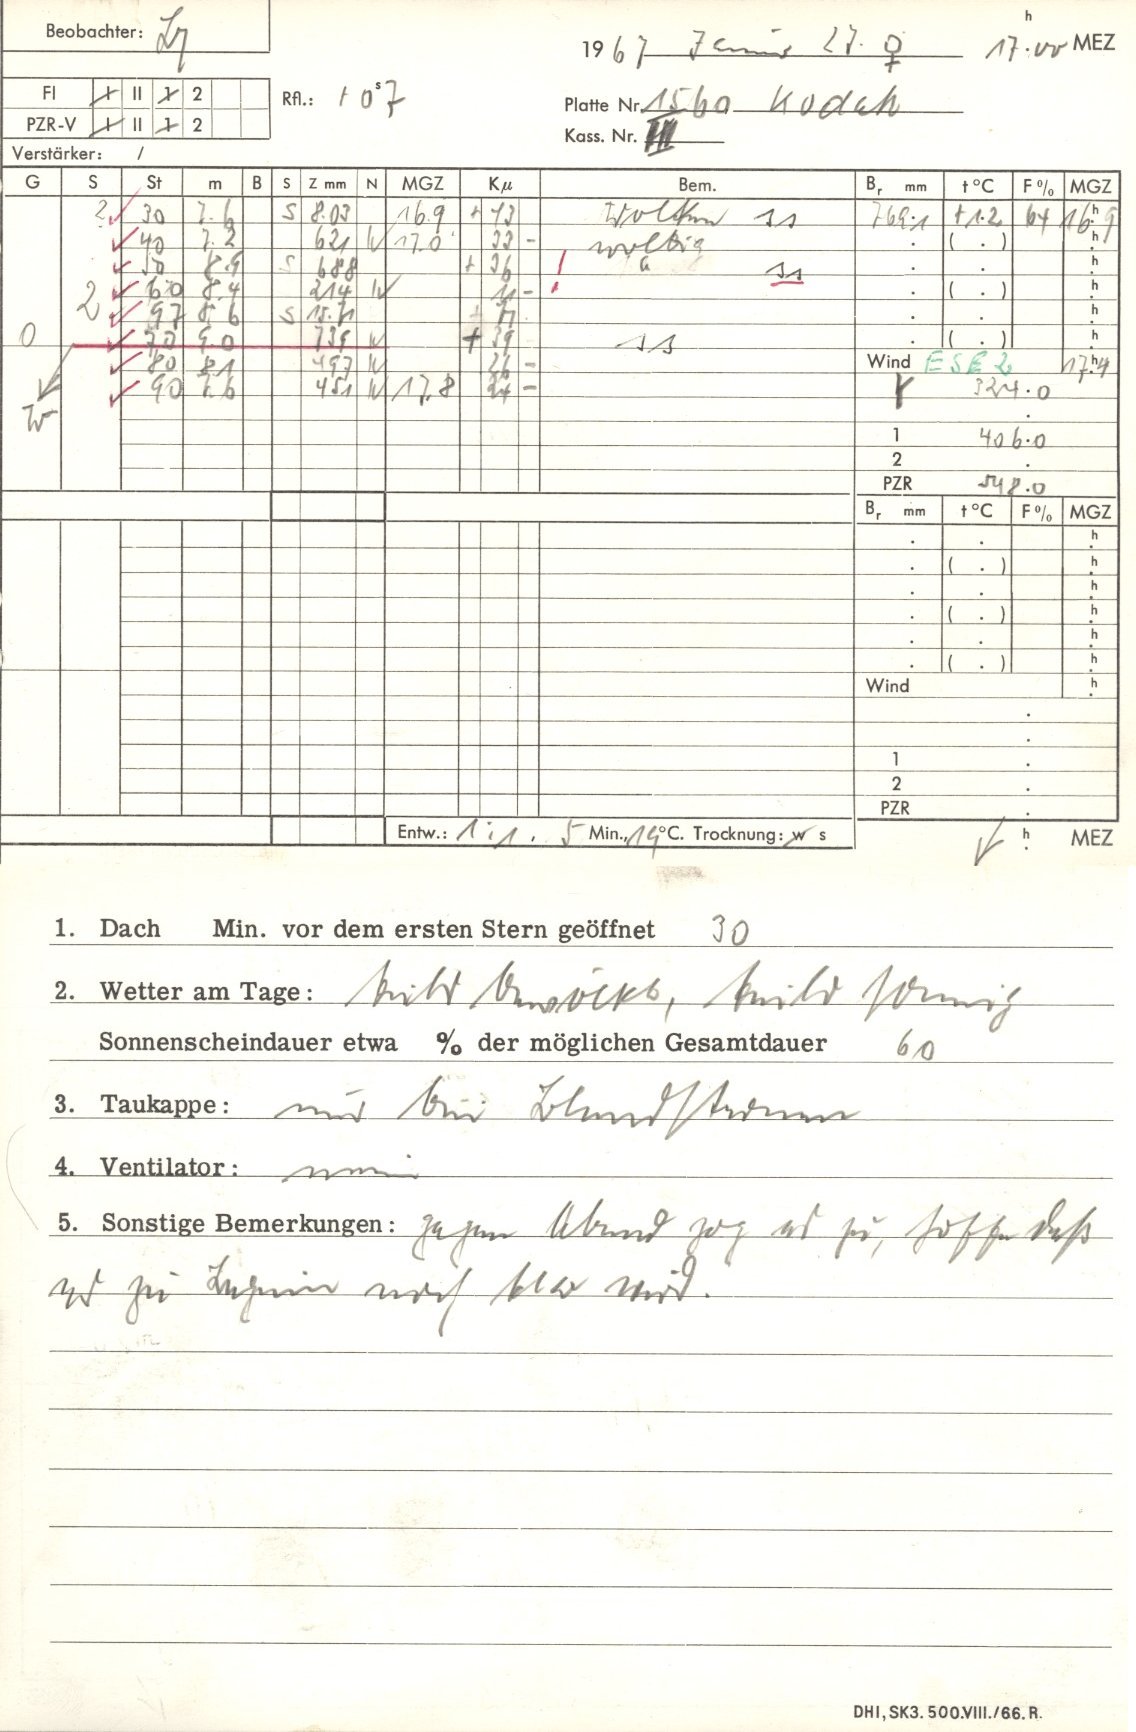 Beobachter: Lg
1967 Januar 27. ♀ 17h.00 MEZ
FI I II 1 2 Rfl.: +0s7
Platte Nr. 1560 Kodak
PZR-V I II 1 2
Kass. Nr. III
Verstärker: /
G S St m B S Z mm N MGZ Kμ Bem. Br mm t °C F % MGZ
2 30 7.6 S 8.03 16.9 + 43 Wolken ss 769.1 +1.2 64 16h.9
40 7.2 621 N 17.0 33 - wolkig ( . ) h
50 8.9 S 688 + 36 " ss h
2 60 8.4 214 N 11 - ( . ) h
97 8.6 S h
0 70 9.0 739 N + 39 ss ( . ) h
80 8.1 497 N 26 - Wind ESE 2 17h.4
90 7.6 451 N 17.8 24 - 324.0
W
1 406.0
2 .
PZR 548.0
Br mm t °C F % MGZ
. . h
. ( . ) h
. . h
. ( . ) h
. . h
. ( . ) h
Wind h
1 .
2 .
PZR .
Entw.: 1:1. 5 Min., 19°C. Trocknung: w s
h MEZ
1. Dach Min. vor dem ersten Stern geöffnet 30
2. Wetter am Tage: teils bewölkt, teils sonnig
Sonnenscheindauer etwa % der möglichen Gesamtdauer 60
3. Taukappe: nur bei Blendsternen
4. Ventilator: nein
5. Sonstige Bemerkungen: gegen Abend zog es zu, hoffe daß
es zu Beginn noch klar wird.
DHI, SK3. 500.VIII./66. R.